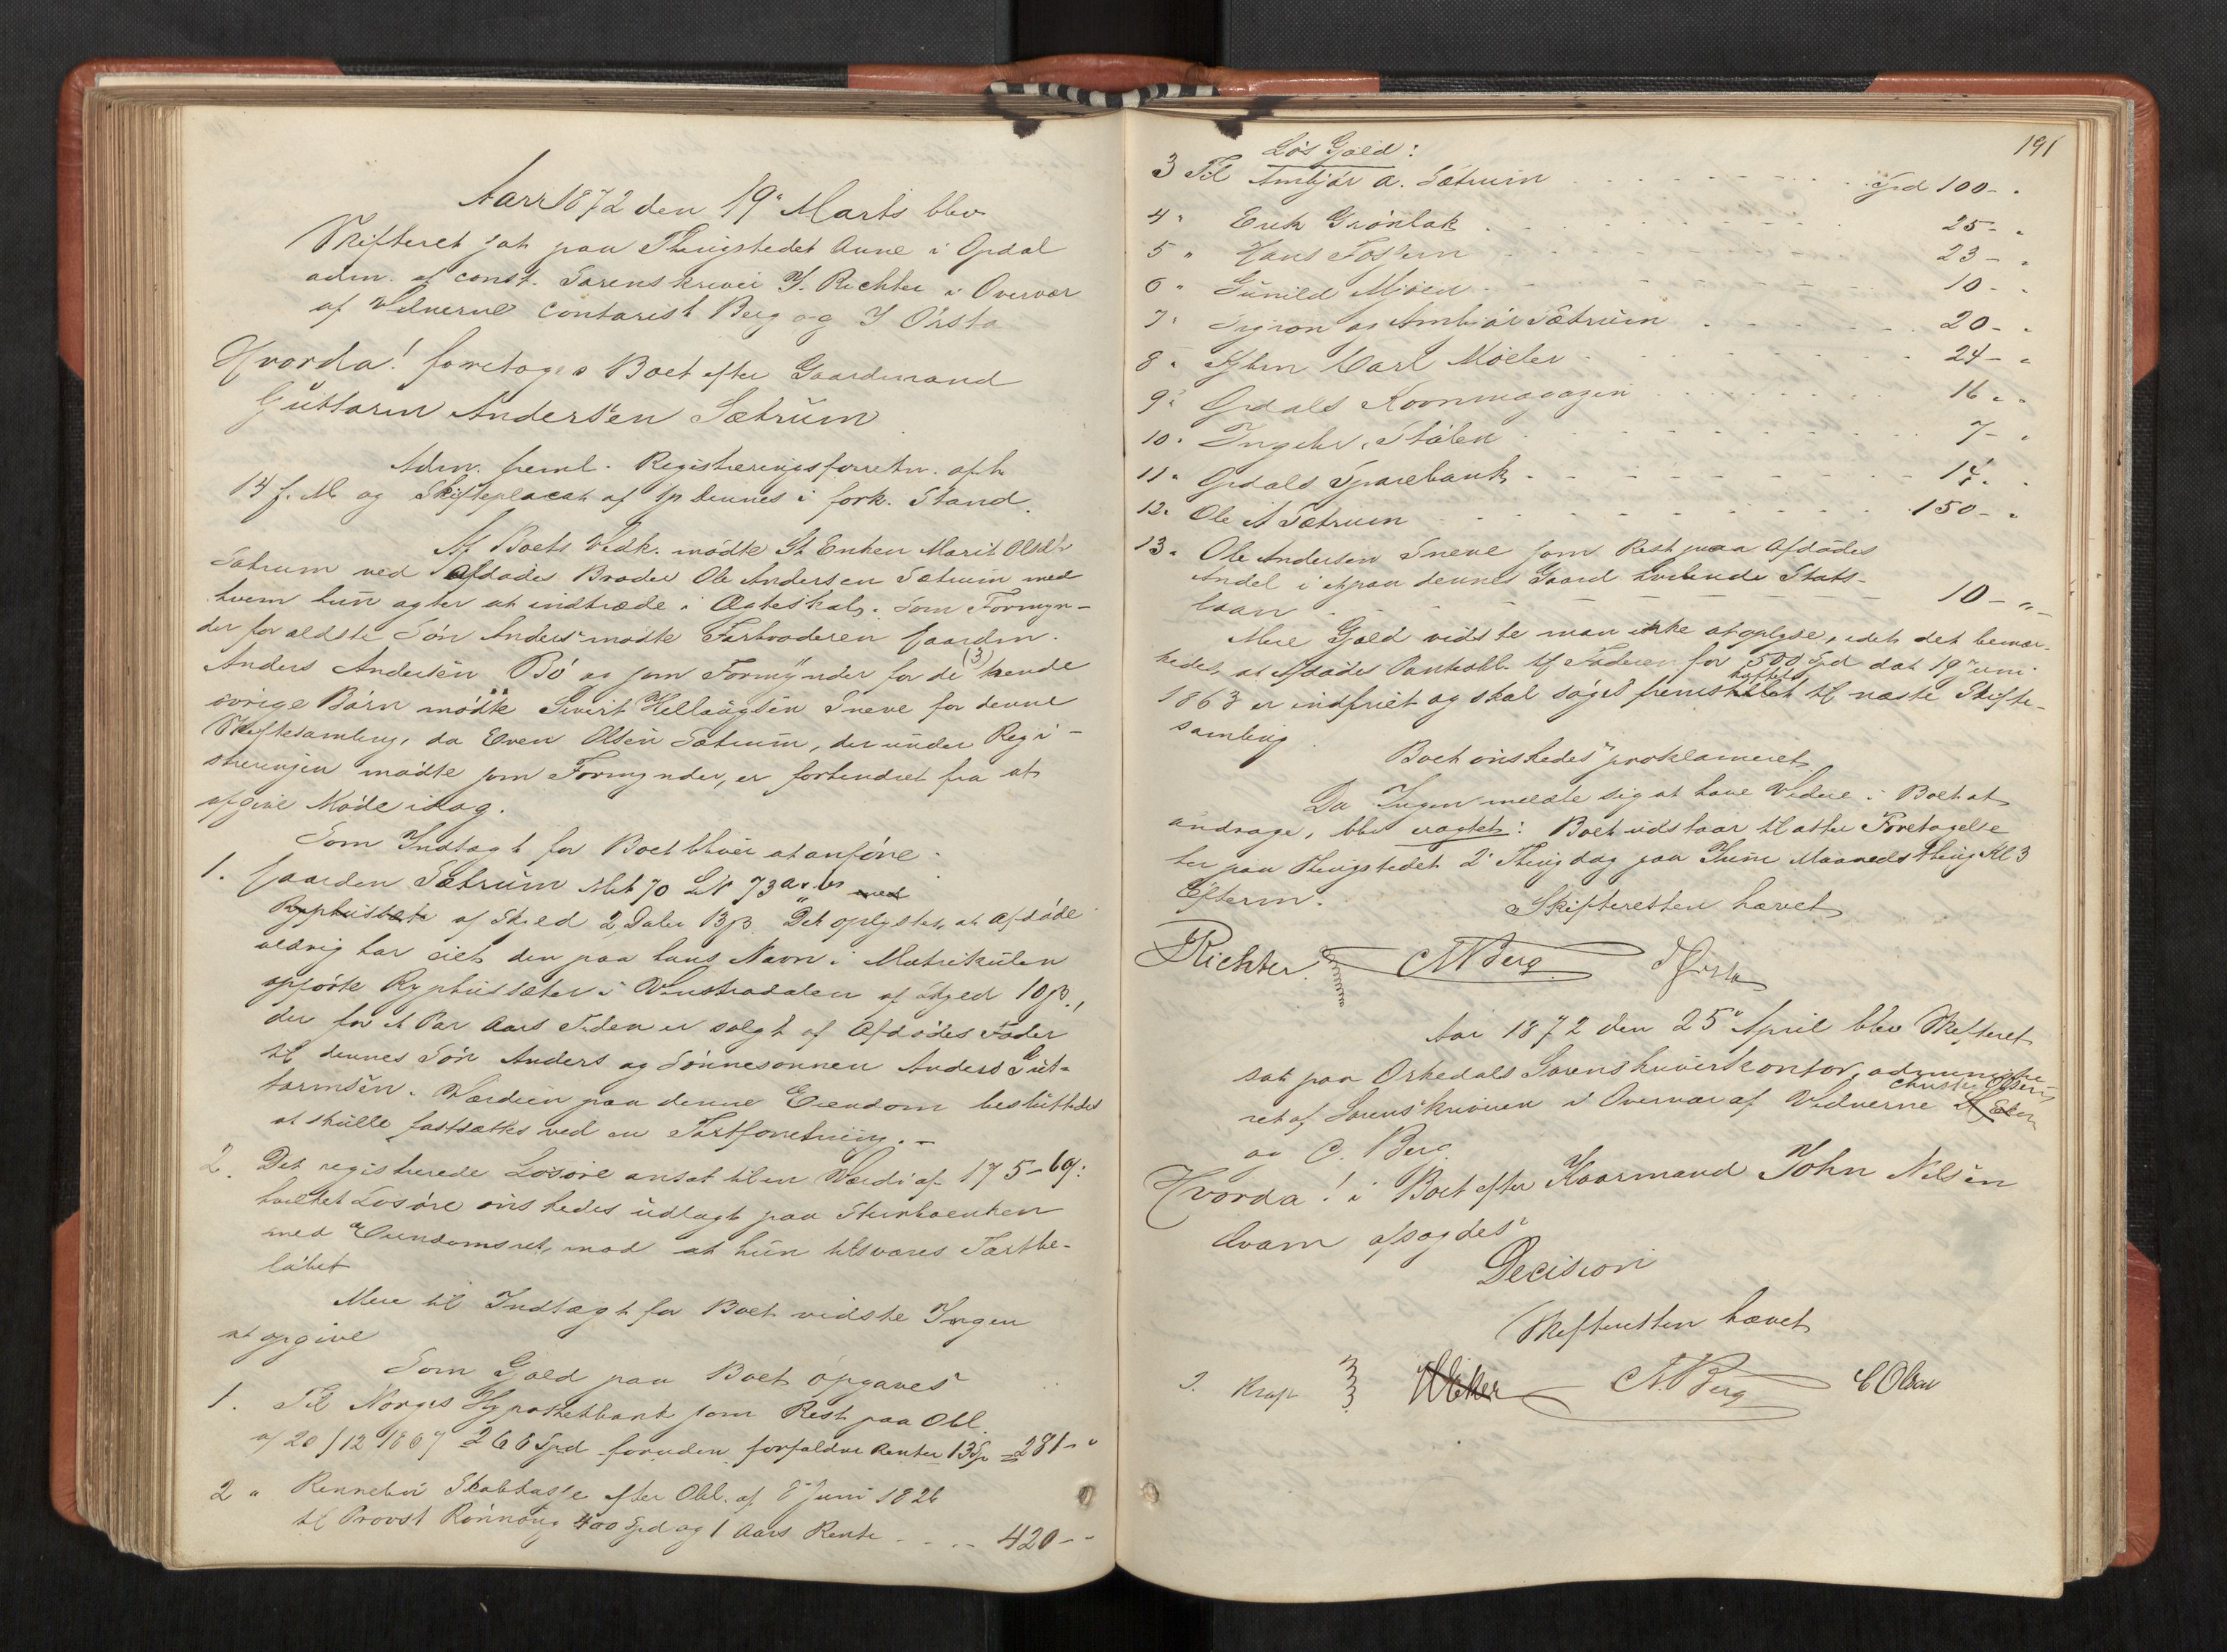 Aar 1872 den 19de Marts blev
Skifteret sat paa Thingstedet Aune i Opdal
adm. af const. Sorenskriver J. Richter i Overvær
af Vidnerne Contorist Berg og J Ørsta
Hvorda! foretoges Boet efter Gaardmand
Guttorm Andersen Sætrum
Adm. freml. Registreringsforretn. afh.
14 f. M. og Skifteplacat af s/p Dennes i fork. Stand.
Af Boets Vedk. mødte St Enken Marit Olsdtr
Sætrum ved Afdødes Broder Ole Andersen Sætrum med
hvem hun agter at indtræde i Ægteskab. Som Formyn-
der for ældste Søn Anders mødte Farbroderen Gaardm.
Anders Andersen Bø og som Formynder for de (3) hende
øvrige Børn mødte Sivert Hellaugsen Sneve for denne
Skiftesamling, da Even Olsen Sætrum, der under Regi-
streringen mødte som Formynder, er forhindret fra at
afgive Møde idag.
Som Indtægt for Boet bliver at anføre
1. Gaarden Sætrum Mat 70 LN 73 a. b. med
Ryphussæter af Skyld 2 Daler 13 ß. Det oplystes, at Afdøde
aldrig har eiet den paa hans Navn i Matrikulen
opførte Ryphussæter i Vinstradalen af Skyld 10 ß.,
der for et Par Aars Tiden er solgt af Afdødes Fader
til dennes Søn Anders og Sønnesønnen Anders Gut-
tormsen. Værdien paa denne Eiendom besluttedes
at skulle fastsættes ved en Taxtforretning. -
2. Det registrerede Løsøre ansat til en Værdi af 175-69:
hvilket Løsøre ønskedes udlagt paa Stervboenken
med Eiendomsret, mod at hun tilsvarer Taxtbe-
løbet
Mere til Indtægt for Boet vidste Ingen
at opgive
Som Gjæld paa Boet opgaves
1. Til Norges Hypothekbank som Rest paa Obl.
af 20/12 1867 268 Spd foruden forfaldne Renter 13 Sp = 281 - "
2 " Rennebu Skolekasse efter Obl. af 8 Juni 1826
til Provst Rønnaug 400 Spd og 1 Aars Rente . . . . 420 - -
191
Løs Gjæld:
3 Til Ambjør A. Sætrum . . . Spd 100 - .
4 " Erik Grønbak . . . 25 - "
5 " Hans Fossem . . . 23 - "
6 " Gunild Mjøen . . . 10 - .
7 " Sigron og Ambjør Sætrum . . . 20 - .
8 " Kjbm Carl Möller . . . 24 - "
9 " Opdals Kornmagazin . . . 16 " .
10 " Ingebr. Stølen . . . 7 - "
11 " Opdals Sparebank . . . 14 .
12 " Ole A Sætrum . . . 150 - "
13 " Ole Andersen Sneve som Rest paa Afdødes
Andel i et paa dennes Gaard hvilende Stats-
laan . . . 10 - " -
Mere Gjæld vidste man ikke at oplyse, idet det bemær-
kedes, at Afdødes Pantobl. til Faderen for 500 Spd dat 19 Juni
1863 er indfriet og skal søges fremskaffet til næste Skifte-
samling
Boet ønskedes proklameret
Da Ingen meldte sig at have Videre i Boet at
andrage, blev eragtet: Boet udstaar til atter Foretagelse
her paa Thingstedet 2 Thingdag paa Juni Maaneds Thing Kl 3
Efterm.
Skifteretten hævet
JRichter. CNBerg JØrsta
Aar 1872 den 25de April blev Skifteret
sat paa Orkedals Sorenskriverkontor, administre-
ret af Sorenskriveren i Overvær af Vidnerne Christen Olsen
og C. Berg.
Hvorda! i Boet efter Kaarmand John Nilsen
Kvam afsagdes
Decision
Skifteretten hævet
J. Krap CN.Berg COlsen